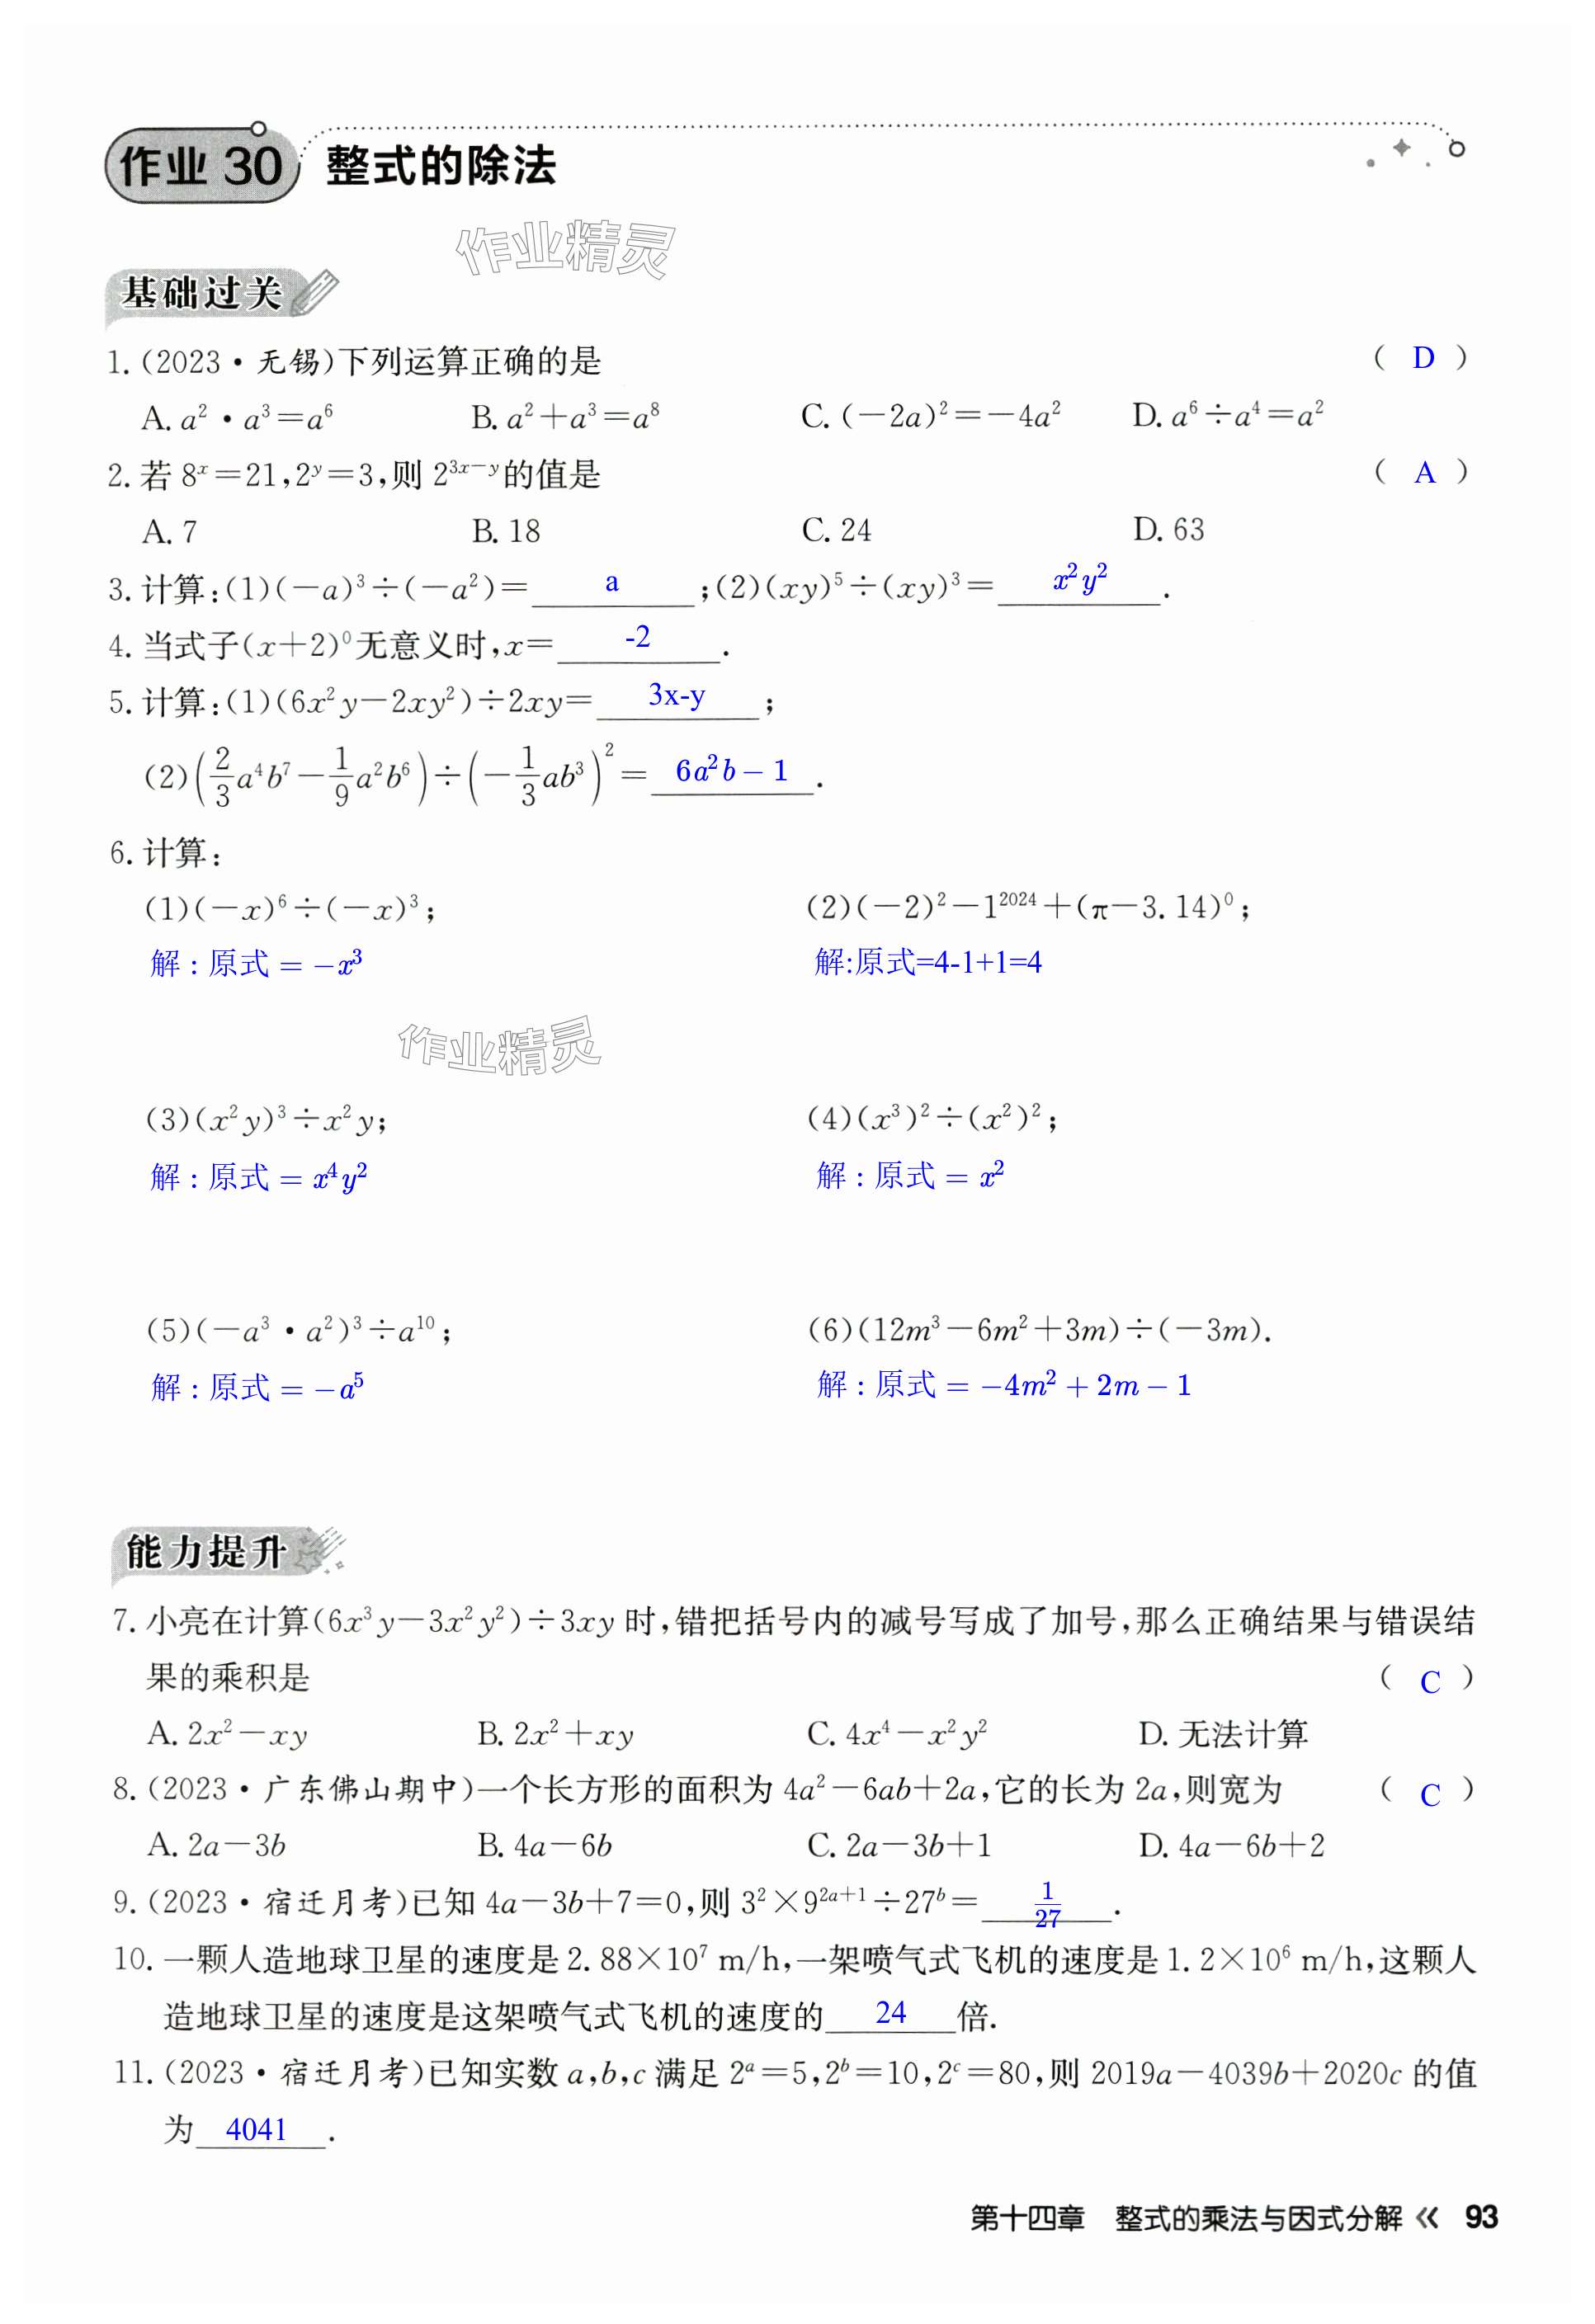 作业 30 整式的除法
作业精灵
基础过关
1. (2023·无锡)下列运算正确的是 ( D )
A. a²·a³=a⁶ B. a²+a³=a⁸ C. (-2a)²=-4a² D. a⁶÷a⁴=a²
2. 若 8ˣ=21,2ʸ=3,则 2³ˣ⁻ʸ的值是 ( A )
A. 7 B. 18 C. 24 D. 63
3. 计算:(1)(-a)³÷(-a²)= a ;(2)(xy)⁵÷(xy)³= x²y² .
4. 当式子(x+2)⁰无意义时,x= -2 .
5. 计算:(1)(6x²y-2xy²)÷2xy= 3x-y ;
(2)(2/3 a⁴b⁷-1/9 a²b⁶)÷(-1/3 ab³)²= 6a²b-1 .
6. 计算:
(1)(-x)⁶÷(-x)³; (2)(-2)²-1²⁰²⁴+(π-3.14)⁰;
解:原式=-x³ 解:原式=4-1+1=4
作业精灵
(3)(x²y)³÷x²y; (4)(x³)²÷(x²)²;
解:原式=x⁴y² 解:原式=x²
(5)(-a³·a²)³÷a¹⁰; (6)(12m³-6m²+3m)÷(-3m).
解:原式=-a⁵ 解:原式=-4m²+2m-1
能力提升
7. 小亮在计算(6x³y-3x²y²)÷3xy 时,错把括号内的减号写成了加号,那么正确结果与错误结
果的乘积是 ( C )
A. 2x²-xy B. 2x²+xy C. 4x⁴-x²y² D. 无法计算
8. (2023·广东佛山期中)一个长方形的面积为 4a²-6ab+2a,它的长为 2a,则宽为 ( C )
A. 2a-3b B. 4a-6b C. 2a-3b+1 D. 4a-6b+2
9. (2023·宿迁月考)已知 4a-3b+7=0,则 3²×9²ᵃ⁺¹÷27ᵇ= 1/27 .
10. 一颗人造地球卫星的速度是 2.88×10⁷ m/h,一架喷气式飞机的速度是 1.2×10⁶ m/h,这颗人
造地球卫星的速度是这架喷气式飞机的速度的 24 倍.
11. (2023·宿迁月考)已知实数 a,b,c 满足 2ᵃ=5,2ᵇ=10,2ᶜ=80,则 2019a-4039b+2020c 的值
为 4041 .
第十四章 整式的乘法与因式分解 « 93